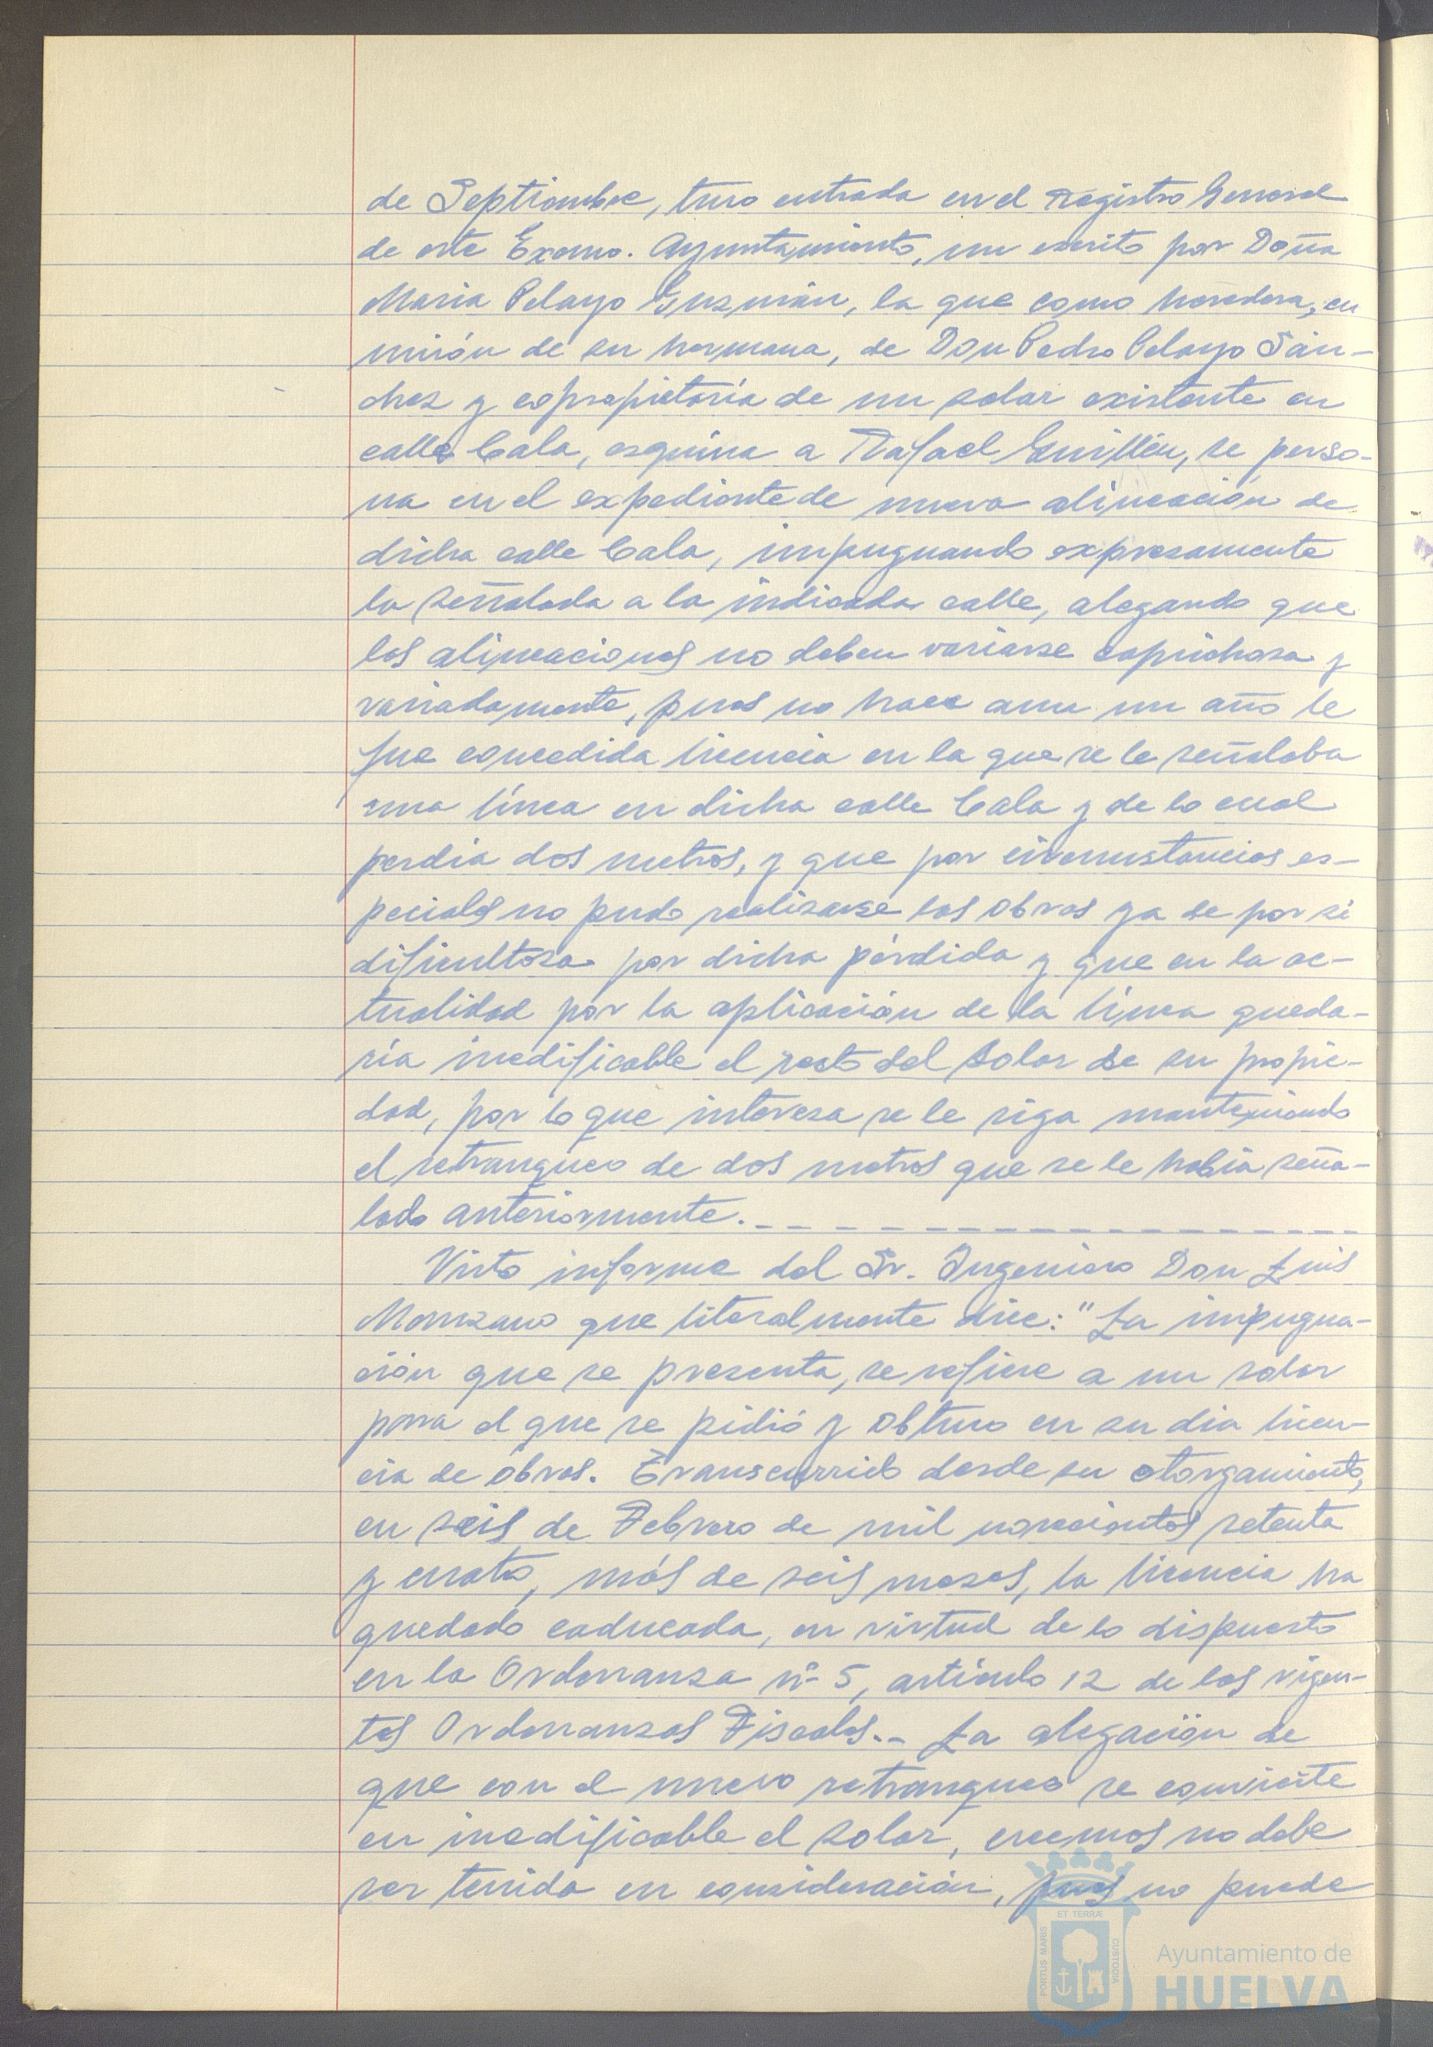 de Septiembre, tuvo entrada en el Registro General
de este Excmo. Ayuntamiento, un escrito por Doña
Maria Pelayo Guzmán, la que como heredera, en
unión de su hermana, de Don Pedro Pelayo Sán-
chez y copropietaria de un solar existente en
calle Cala, esquina a Rafael Guillén, se perso-
na en el expediente de nueva alineación de
dicha calle Cala, impugnando expresamente
la señalada a la indicada calle, alegando que
las alineaciones no deben variarse caprichosa y
variadamente, pues no hace aun un año le
fue concedida licencia en la que se le señalaba
una línea en dicha calle Cala y de lo cual
perdia dos metros, y que por circunstancias es-
peciales no pudo realizarse las obras ya de por si
dificultosa por dicha pérdida y que en la ac-
tualidad por la aplicación de la línea queda-
ría inedificable el resto del solar de su propie-
dad, por lo que interesa se le siga manteniendo
el retranqueo de dos metros que se le habia seña-
lado anteriormente.
Visto informe del Sr. Ingeniero Don Luis
Manzano que literalmente dice: "La impugna-
ción que se presenta, se refiere a un solar
para el que se pidió y obtuvo en su dia licen-
cia de obras. Transcurrido desde su otorgamiento,
en seis de Febrero de mil novecientos setenta
y cuatro, más de seis meses, la licencia ha
quedado caducada, en virtud de lo dispuesto
en la Ordenanza nº 5, artículo 12 de las vigen-
tes Ordenanzas Fiscales.- La alegación de
que con el nuevo retranqueo se convierte
en inedificable el solar, creemos no debe
ser tenida en consideración, pues no puede
PORTUS MARIS
ET TERRÆ
CUSTODIA
Ayuntamiento de
HUELVA